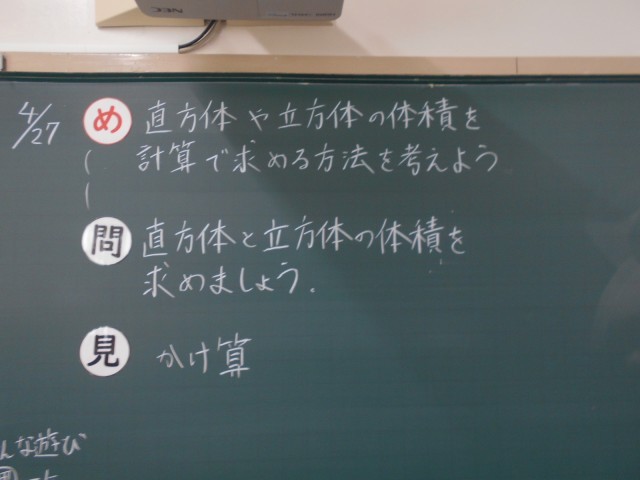 NEC
4/27
め 直方体や立方体の体積を
計算で求める方法を考えよう
問 直方体と立方体の体積を
求めましょう.
見 かけ算
んな遊び